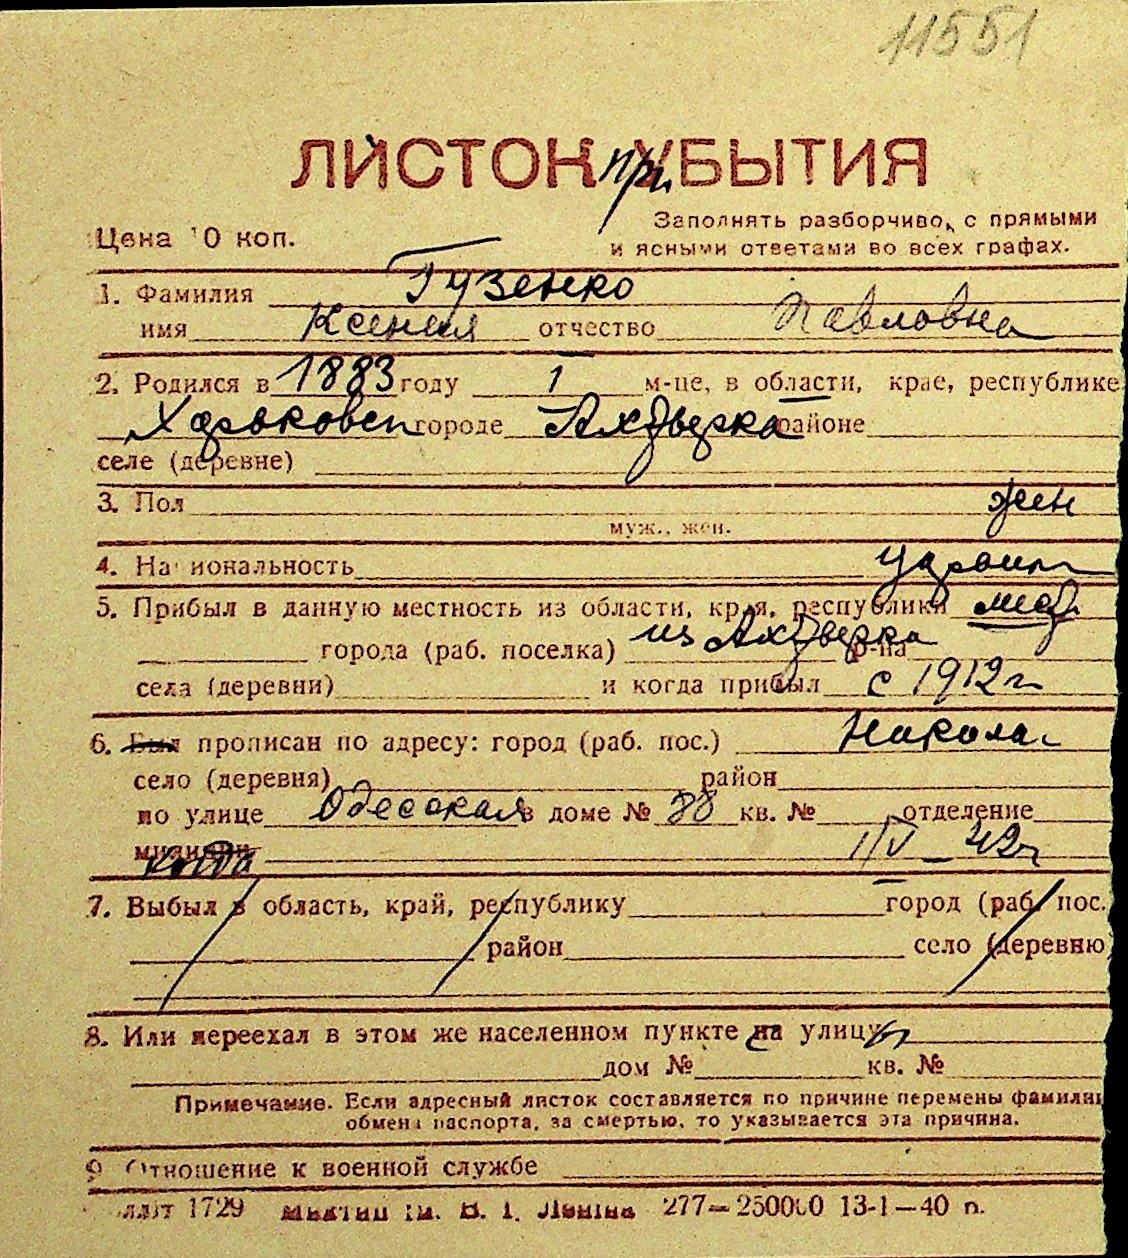 11551
ЛИСТОК при УБЫТИЯ
Заполнять разборчиво, с прямыми
Цена 10 коп.
и ясными ответами во всех графах.
1. Фамилия Гузенко
имя Ксения отчество Павловна
2. Родился в 1883 году 1 м-це, в области, крае, республике
Харьковск городе Ахтырка районе
селе (деревне)
3. Пол жен
муж., жен.
4. Национальность
5. Прибыл в данную местность из области, края, республики
города (раб. поселка) из Ахтырка р-на
села (деревни) и когда прибыл с 1912 г
6. Был прописан по адресу: город (раб. пос.) Никола
село (деревня) район
по улице Одесская в доме № 88 кв. № отделение
милиции когда 1/IV - 42 г
7. Выбыл в область, край, республику город (раб. пос.
район село (деревню
8. Или переехал в этом же населенном пункте на улицу
дом № кв. №
Примечание. Если адресный листок составляется по причине перемены фамилии
обмена паспорта, за смертью, то указывается эта причина.
9 Отношение к военной службе
1729 277—250000 13-1—40 п.